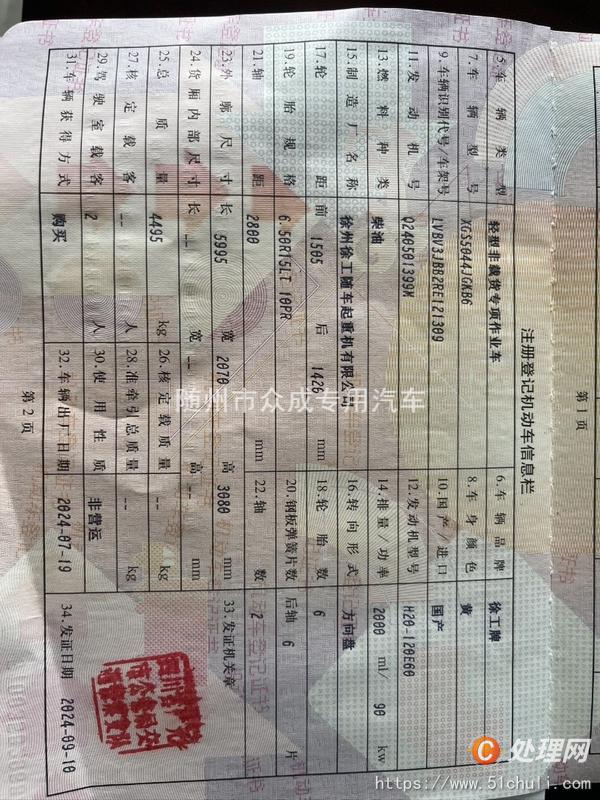 第1页
注册登记机动车信息栏
5.车辆类型 轻型非载货专项作业车 6.车辆品牌 徐工牌
7.车辆型号 XGS5044JGKB6 8.车身颜色 黄
9.车辆识别代号/车架号 LVBV3JBB2RE121309 10.国产/进口 国产
11.发动机号 Q240501399M 12.发动机型号 H20-120E60
13.燃料种类 柴油 14.排量/功率 2000 ml/ 90 kw
15.制造厂名称 徐州徐工随车起重机有限公司 16.转向形式 方向盘
17.轮距 前 1505 后 1426 mm 18.轮胎数 6
19.轮胎规格 6.50R15LT 10PR 20.钢板弹簧片数 后轴 6 片
21.轴距 2800 mm 22.轴数 2
23.外廓尺寸 长 5995 宽 2070 高 3080 mm 33.发证机关章
24.货厢内部尺寸 长 -- 宽 -- 高 -- mm
25.总质量 4495 kg 26.核定载质量 -- kg
27.核定载客 -- 人 28.准牵引总质量 -- kg
29.驾驶室载客 2 人 30.使用性质 非营运
31.车辆获得方式 购买 32.车辆出厂日期 2024-07-19 34.发证日期 2024-09-10
第2页
随州市众成专用汽车
处理网
https://www.51chuli.com/